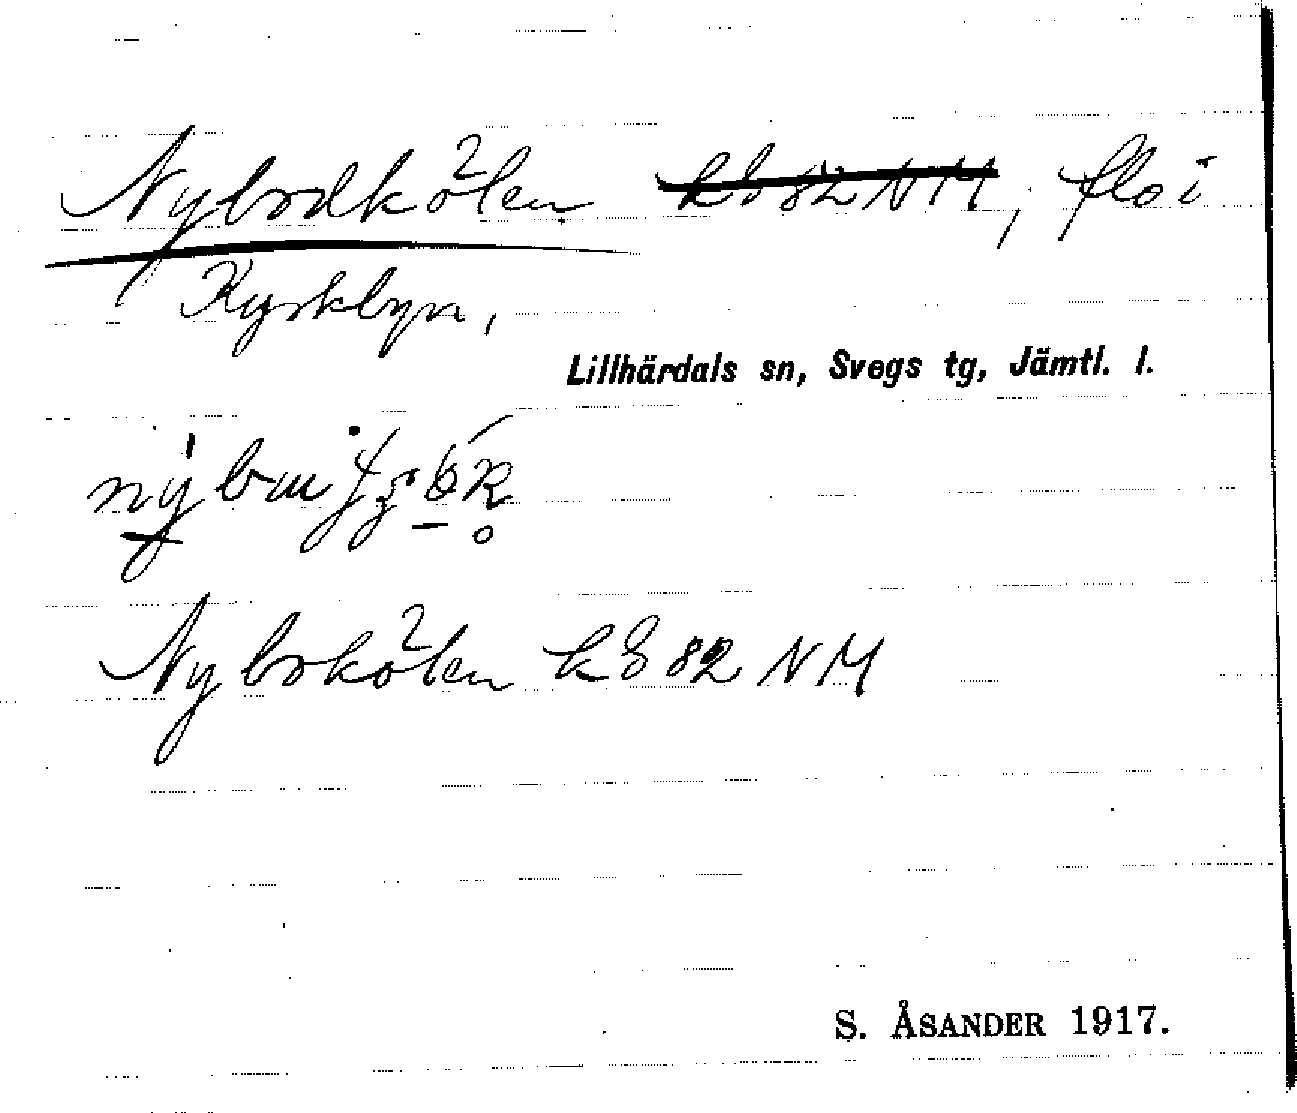 Nybodkölen k8 82 NM, flo i
Kyrkbyn,
Lillhärdals sn, Svegs tg, Jämtl. l.
Nybokölen k8 82 NM
S. ÅSANDER 1917.